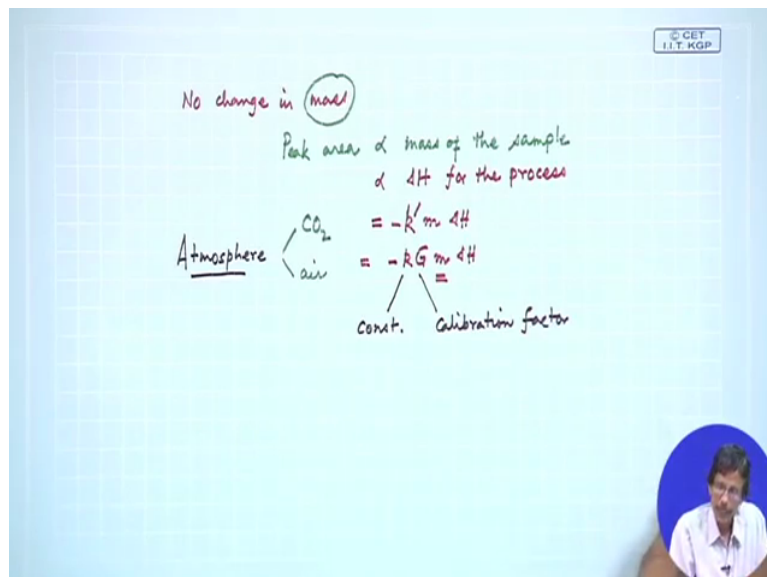 © CET
I.I.T. KGP
No change in mass
Peak area ∝ mass of the sample
∝ ΔH for the process
= -k′ m ΔH
Atmosphere
CO₂
air
= -k G m ΔH
Const.
Calibration factor